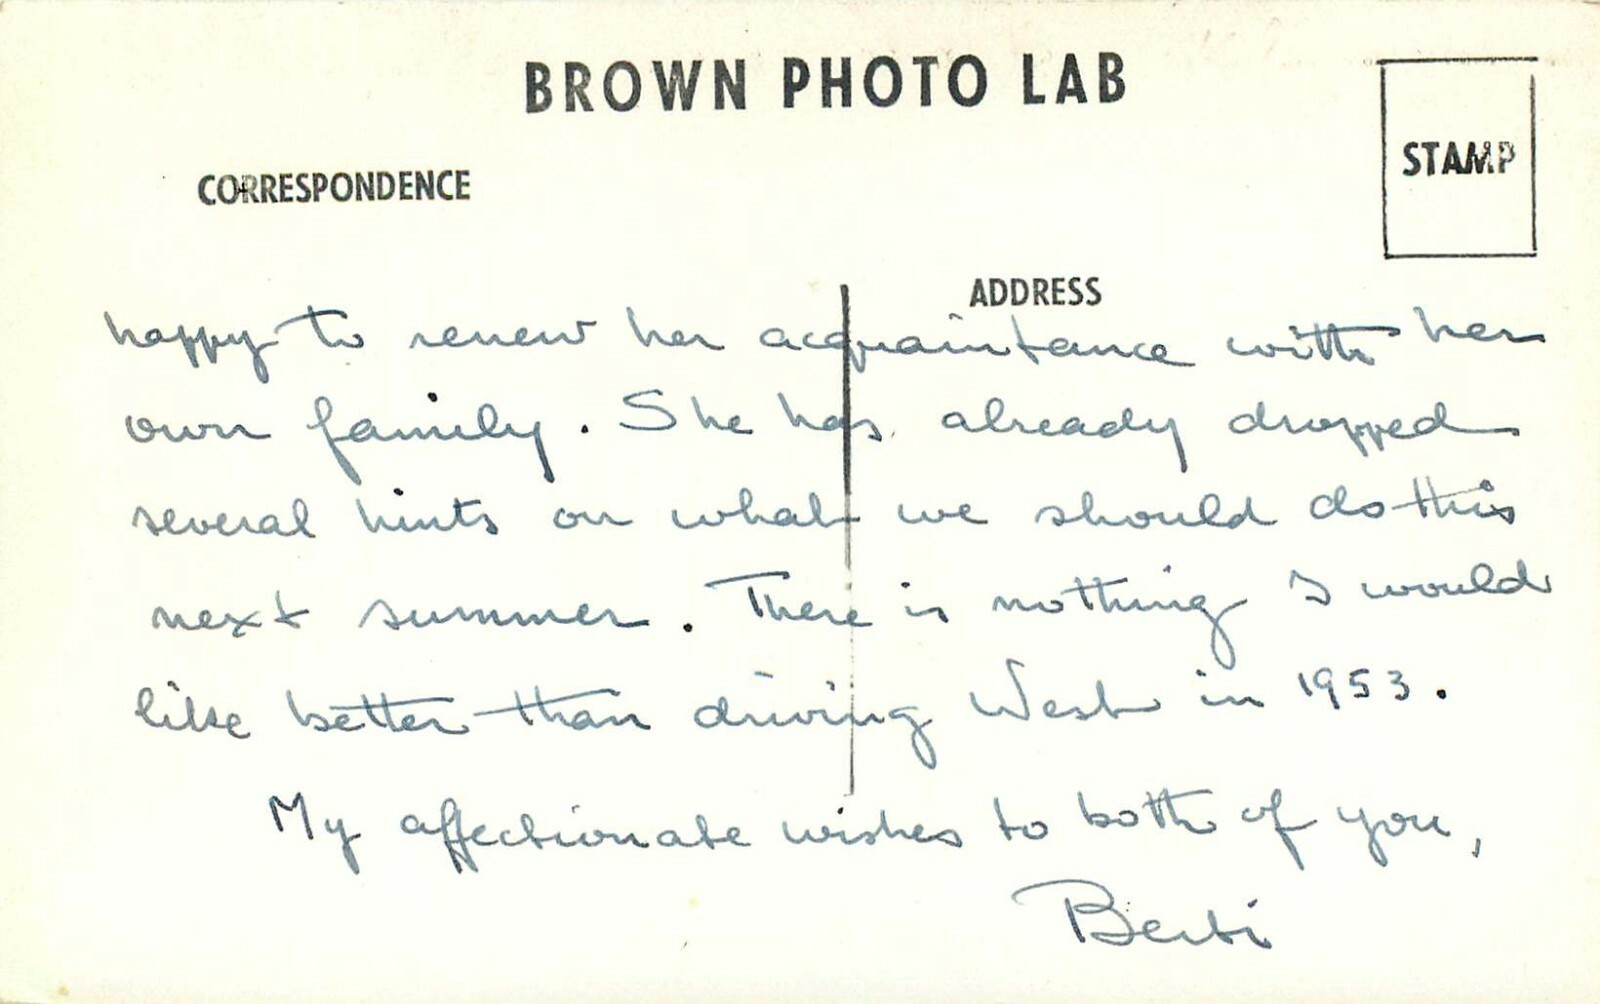 BROWN PHOTO LAB
STAMP
CORRESPONDENCE
ADDRESS
happy to renew her acquaintance with her
own family. She has already dropped
several hints on what we should do this
next summer. There is nothing I would
like better than driving West in 1953.
My affectionate wishes to both of you,